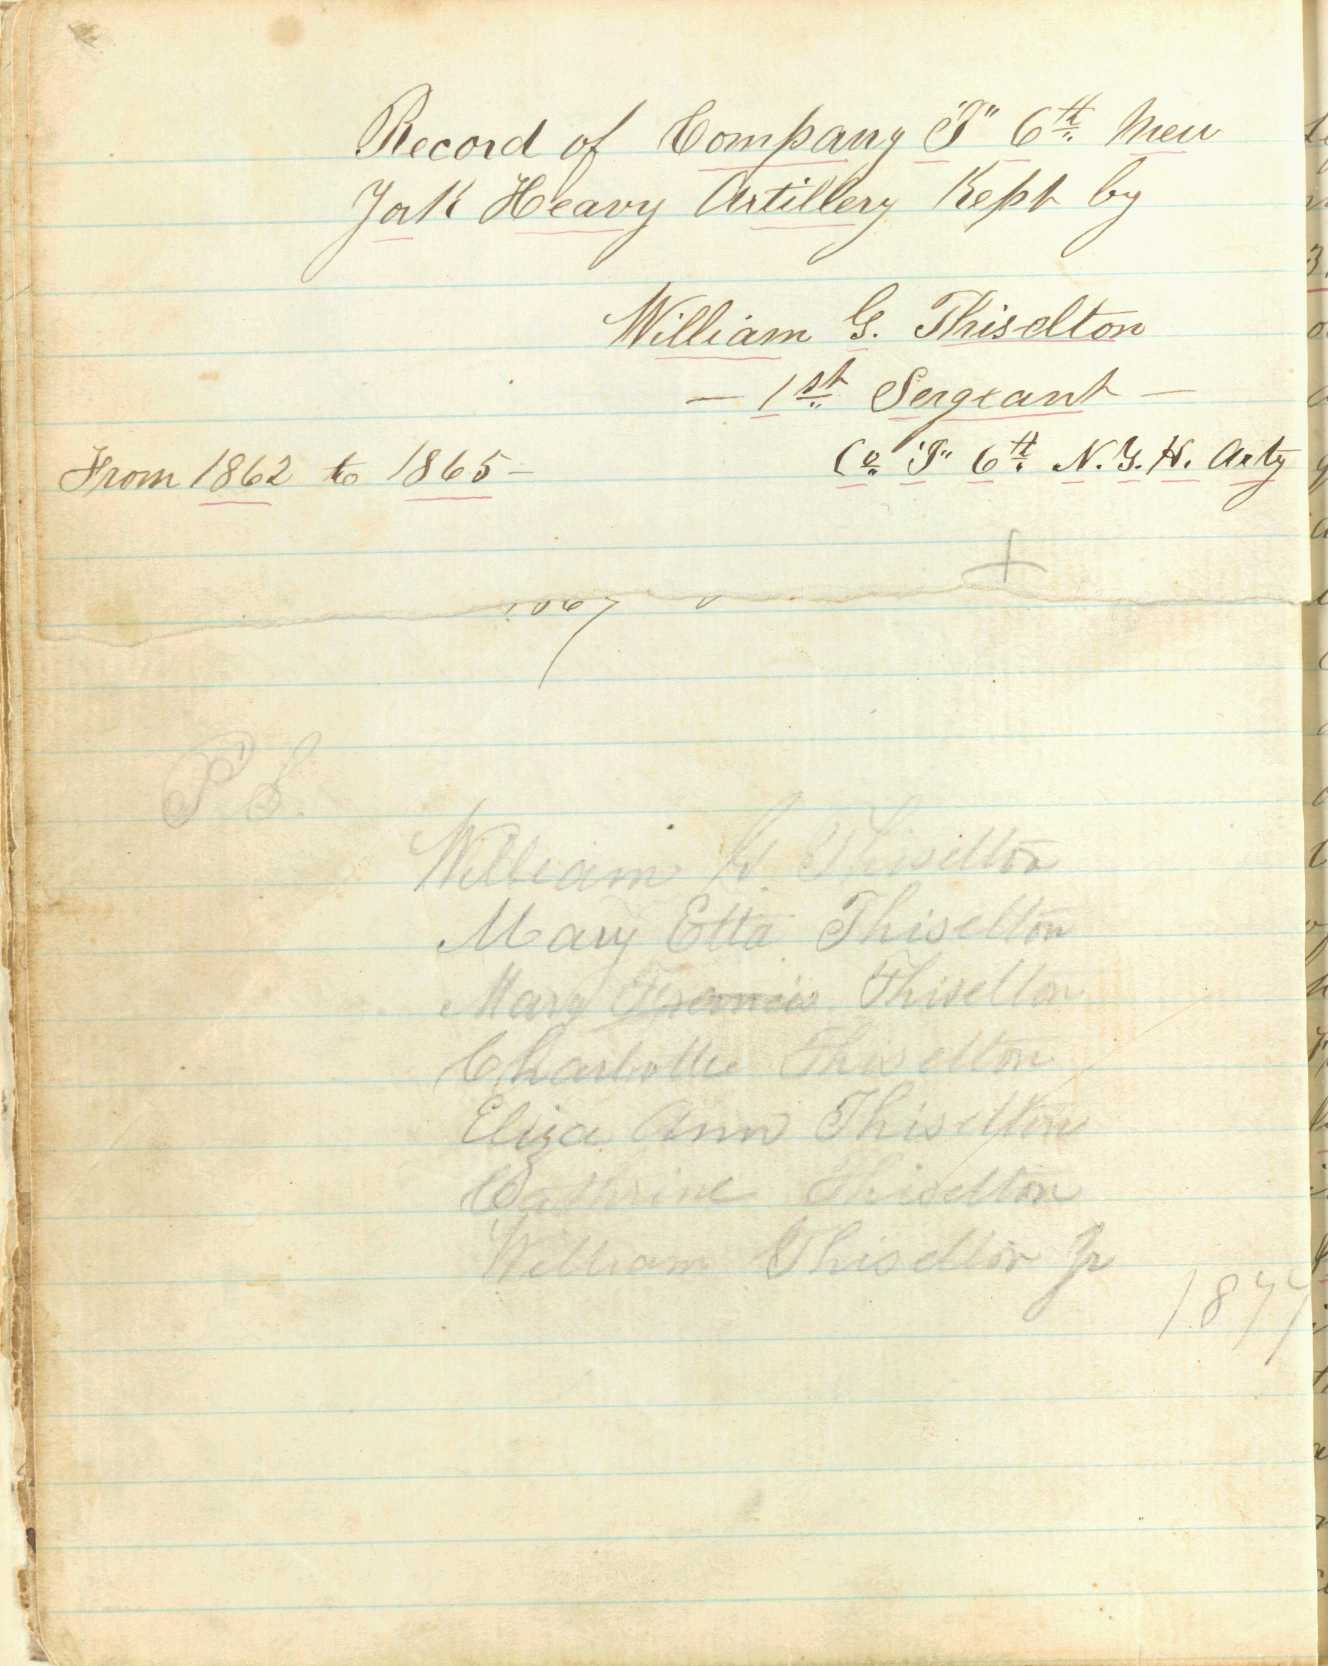 Record of Company "I" 6th New
York Heavy Artillery Kept by
William G. Thiselton
— 1st Sergeant —
From 1862 to 1865 –
Co "I" 6th N.Y.H. Arty
1867
P.S.
William G. Thiselton
Mary Etta Thiselton
Mary Francis Thiselton
Charlottie Thiselton
Eliza Ann Thiselton
Cathrine Thiselton
William Thiselton Jr
1877